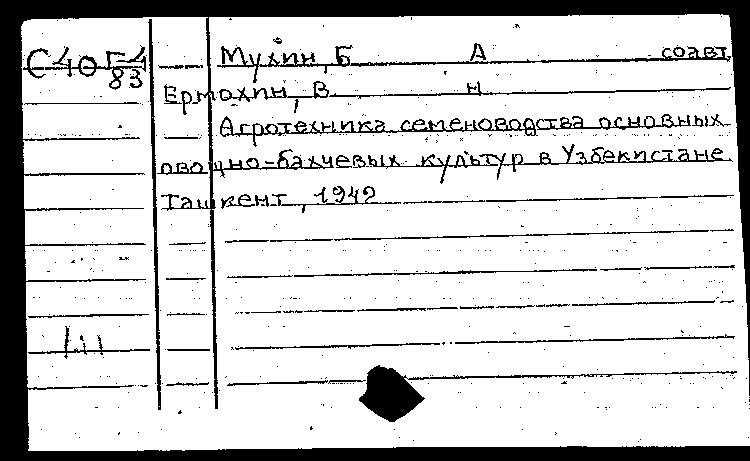 С40Г-4
83
Мухин, Б А соавт.
Ермохин, В Н
Агротехника семеноводства основных
овощно-бахчевых культур в Узбекистане
Ташкент, 1942